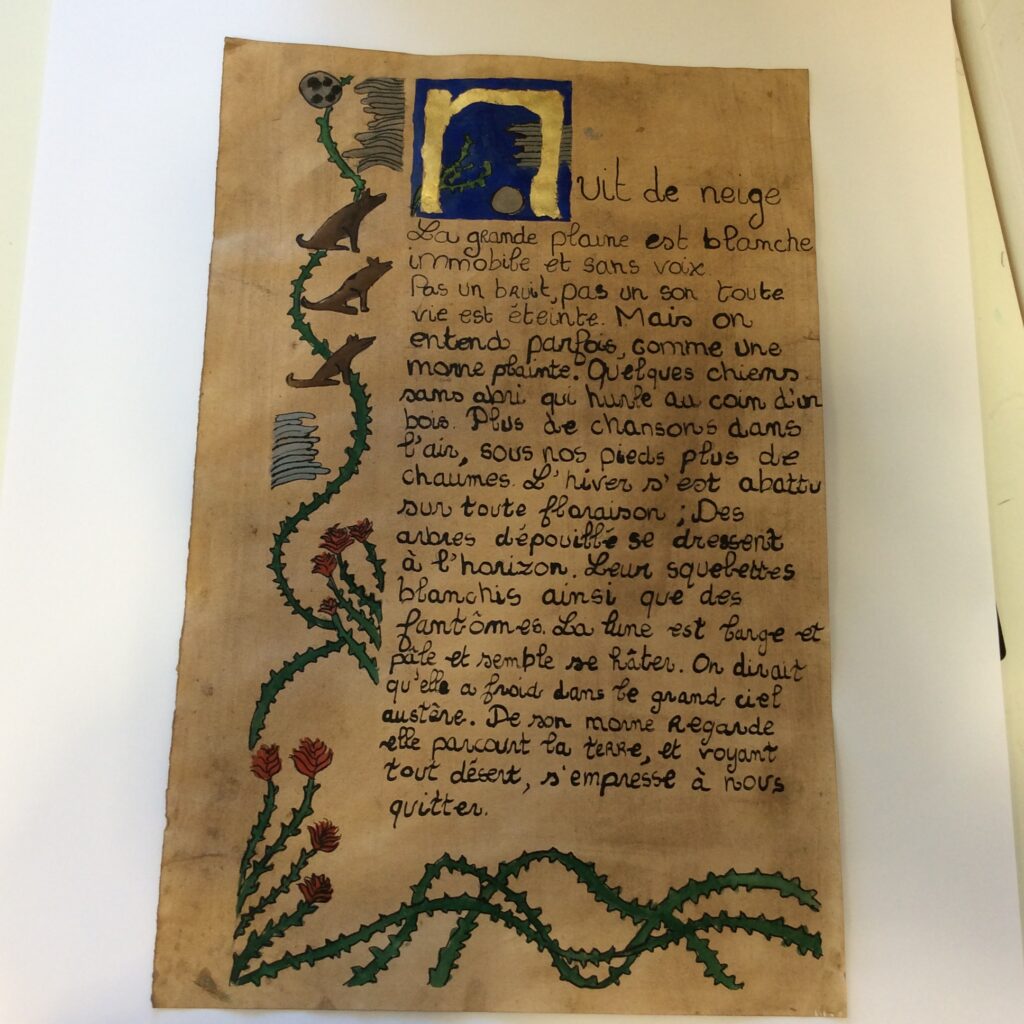 Nuit de neige
La grande plaine est blanche
immobile et sans voix.
Pas un bruit, pas un son toute
vie est éteinte. Mais on
entend parfois, comme une
morne plainte. Quelques chiens
sans abri qui hurle au coin d'un
bois. Plus de chansons dans
l'air, sous nos pieds plus de
chaumes. L'hiver s'est abattu
sur toute floraison ; Des
arbres dépouillé se dressent
à l'horizon. Leur squelettes
blanchis ainsi que des
fantômes. La lune est large et
pâle et semble se hâter. On dirait
qu'elle a froid dans le grand ciel
austère. De son morne Regarde
elle parcourt la terre, et voyant
tout désert, s'empresse à nous
quitter.